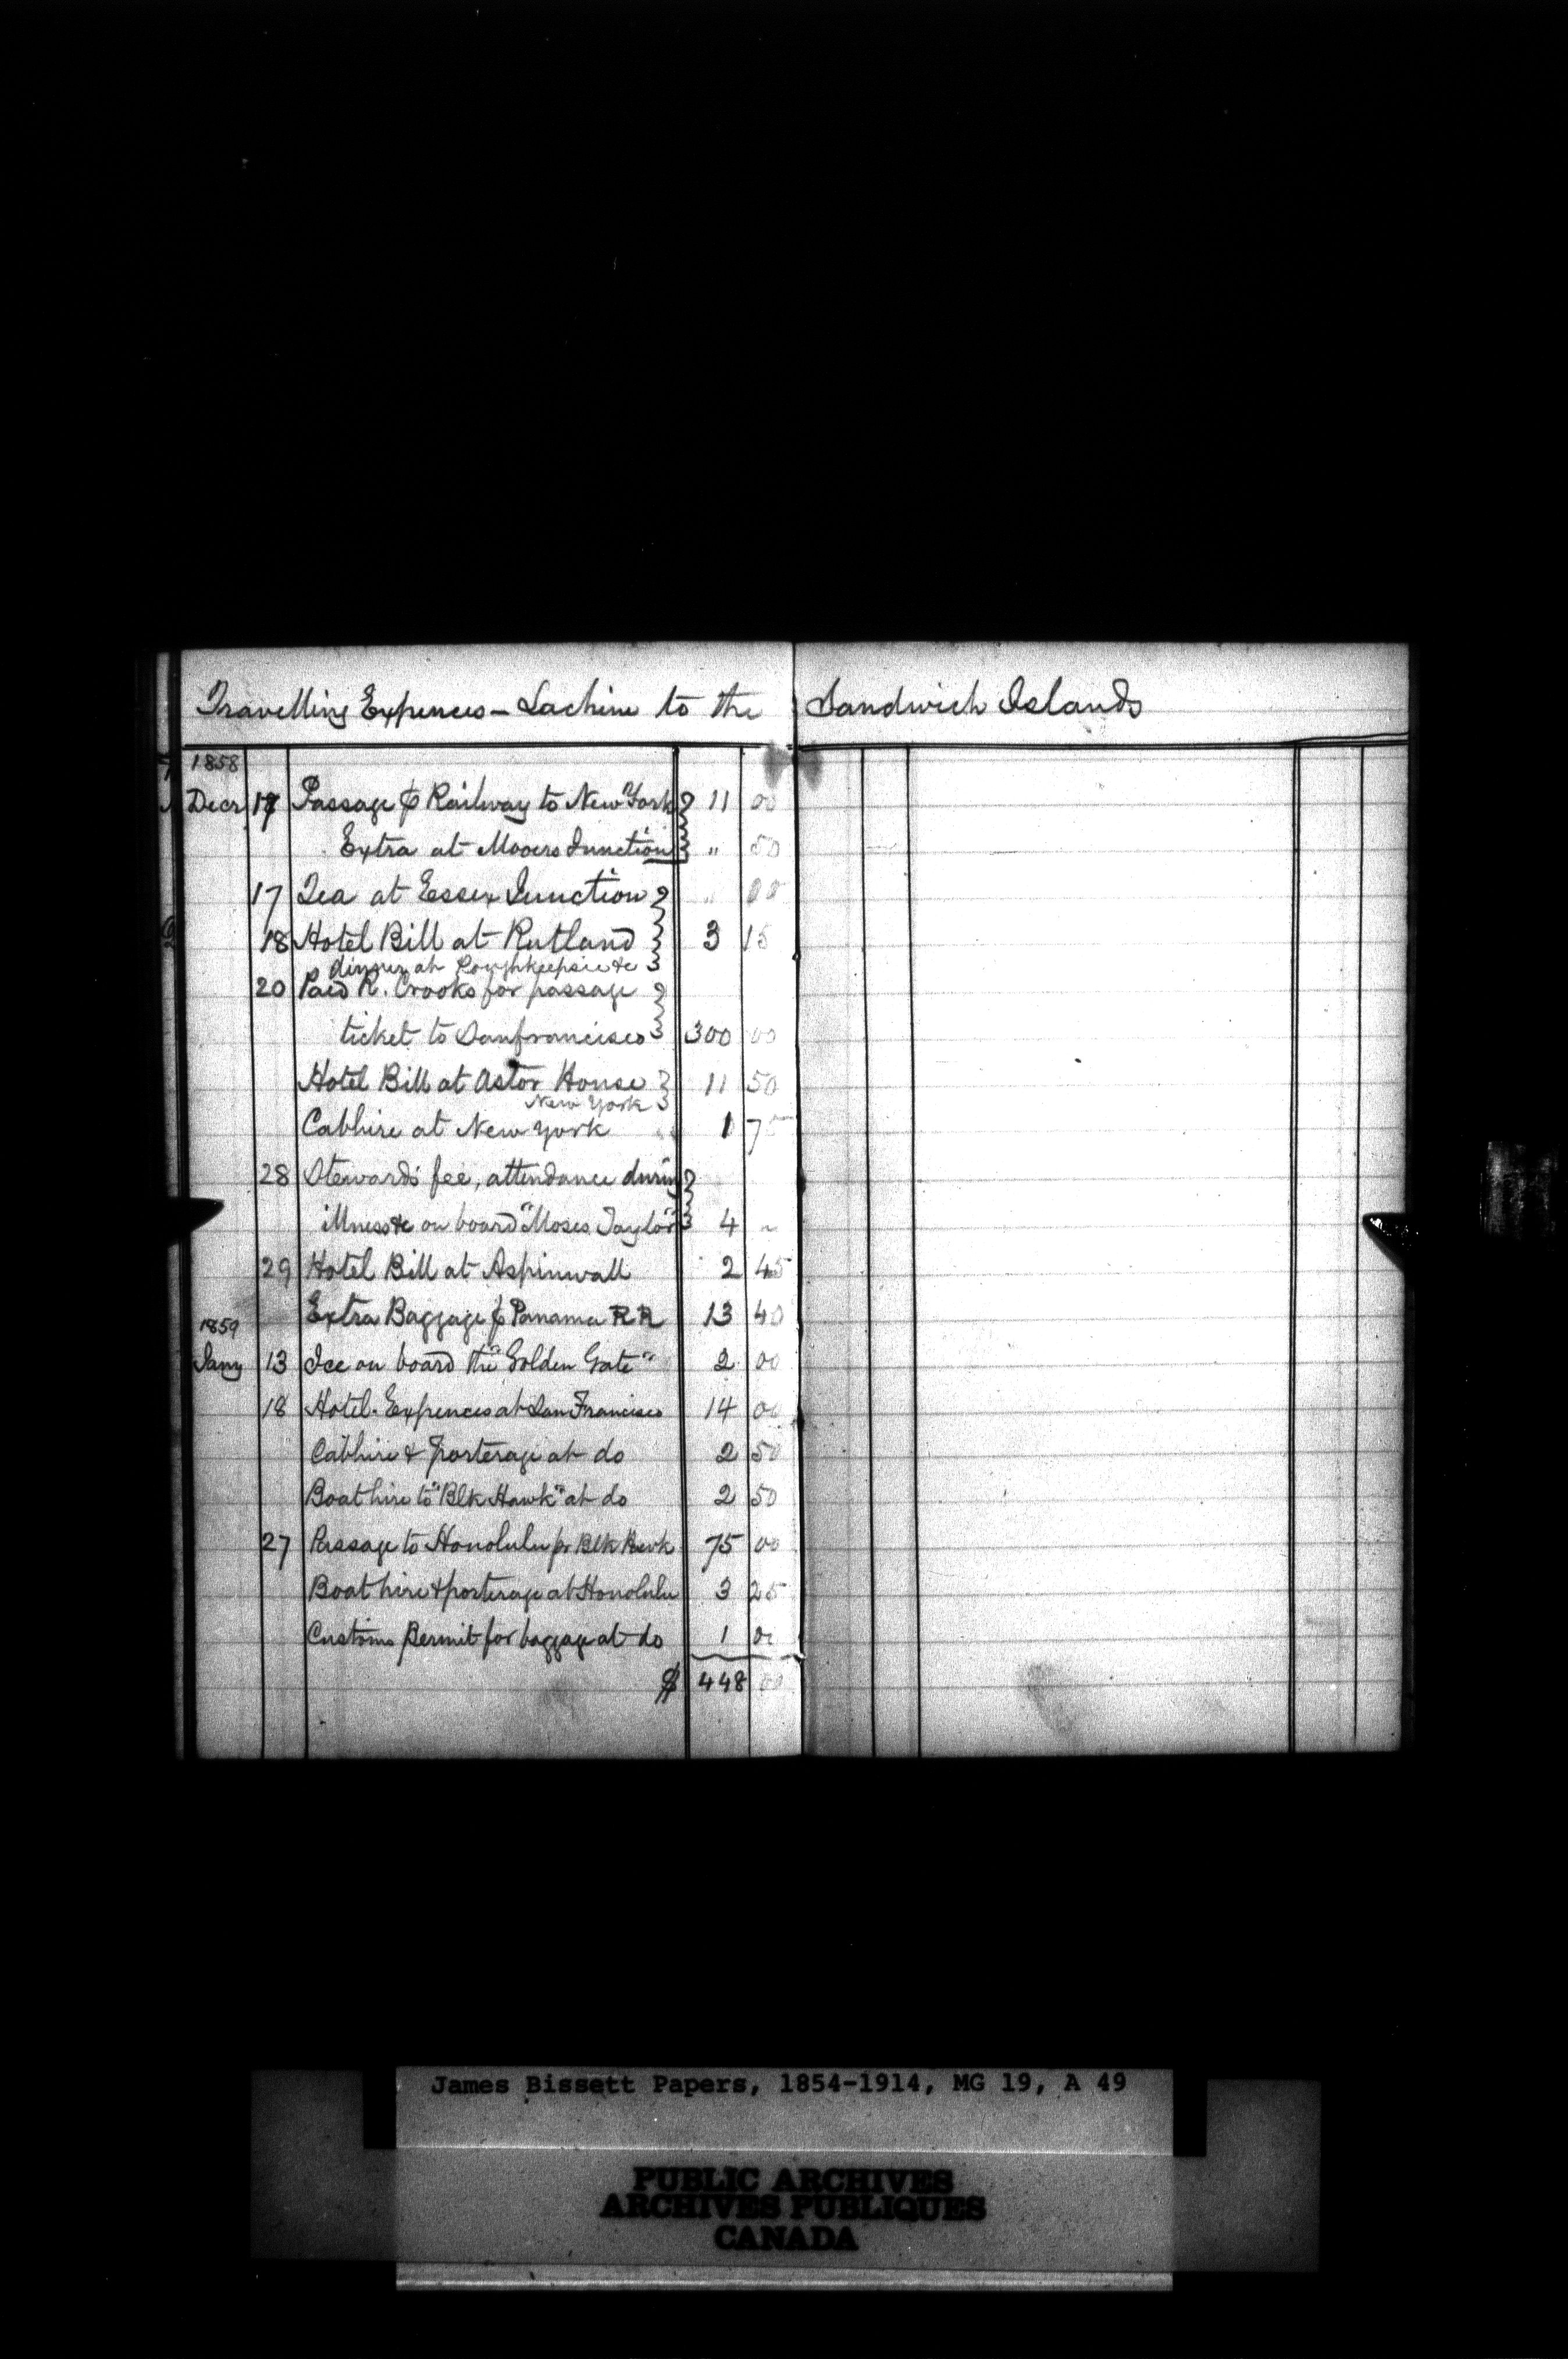 Travelling Expences - Lachine to the Sandwich Islands
1858
Decr 17 Passage p Railway to New York 11 00
Extra at Mooers Junction " 50
17 Tea at Essex Junction "
18 Hotel Bill at Rutland 3 15
dinner at Poughkeepsie &c
20 Paid R. Crooks for passage
ticket to Sanfrancisco 300 00
Hotel Bill at Astor House 11 50
New York
Cabhire at New York 1 75
28 Stewards fee, attendance during
illness &c on board "Moses Taylor" 4 ~
29 Hotel Bill at Aspinwall 2 45
Extra Baggage p Panama RR 13 40
1859
Jany 13 Ice on board the "Golden Gate" 2 00
18 Hotel Expences at San Francisco 14 00
Cabhire & porterage at do 2 50
Boat hire to "Blk Hawk" at do 2 50
27 Passage to Honolulu pr Blk Hawk 75 00
Boat hire & porterage at Honolulu 3 25
Customs Permit for baggage at do 1 00
$ 448 00
James Bissett Papers, 1854-1914, MG 19, A 49
PUBLIC ARCHIVES
ARCHIVES PUBLIQUES
CANADA